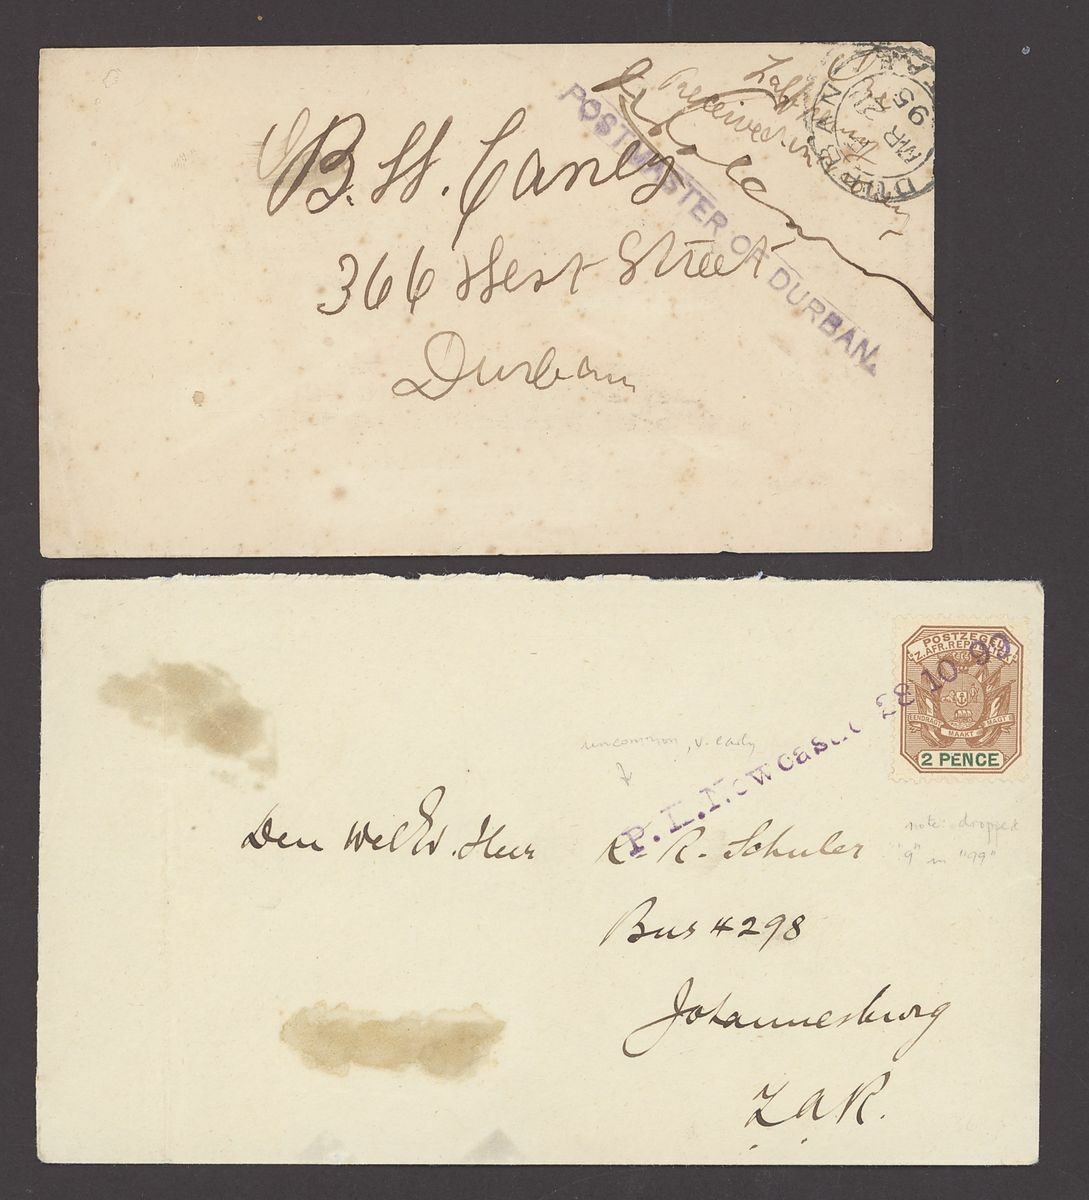 B. W. Caney
366 West Street
Durban
POSTMASTER OF DURBAN.
Half
Received in
DURBAN
MR
95
POSTZEGEL
Z. AFR. REPUBLIEK
EENDRAGT MAAKT MAGT
2 PENCE
P. K. Newcastle 28 10 99
uncommon, v. early
note: dropped
"9" in "99"
Den Wel Ed. Heer R. Schuler
Bus 4298
Johannesburg
Z. A. R.